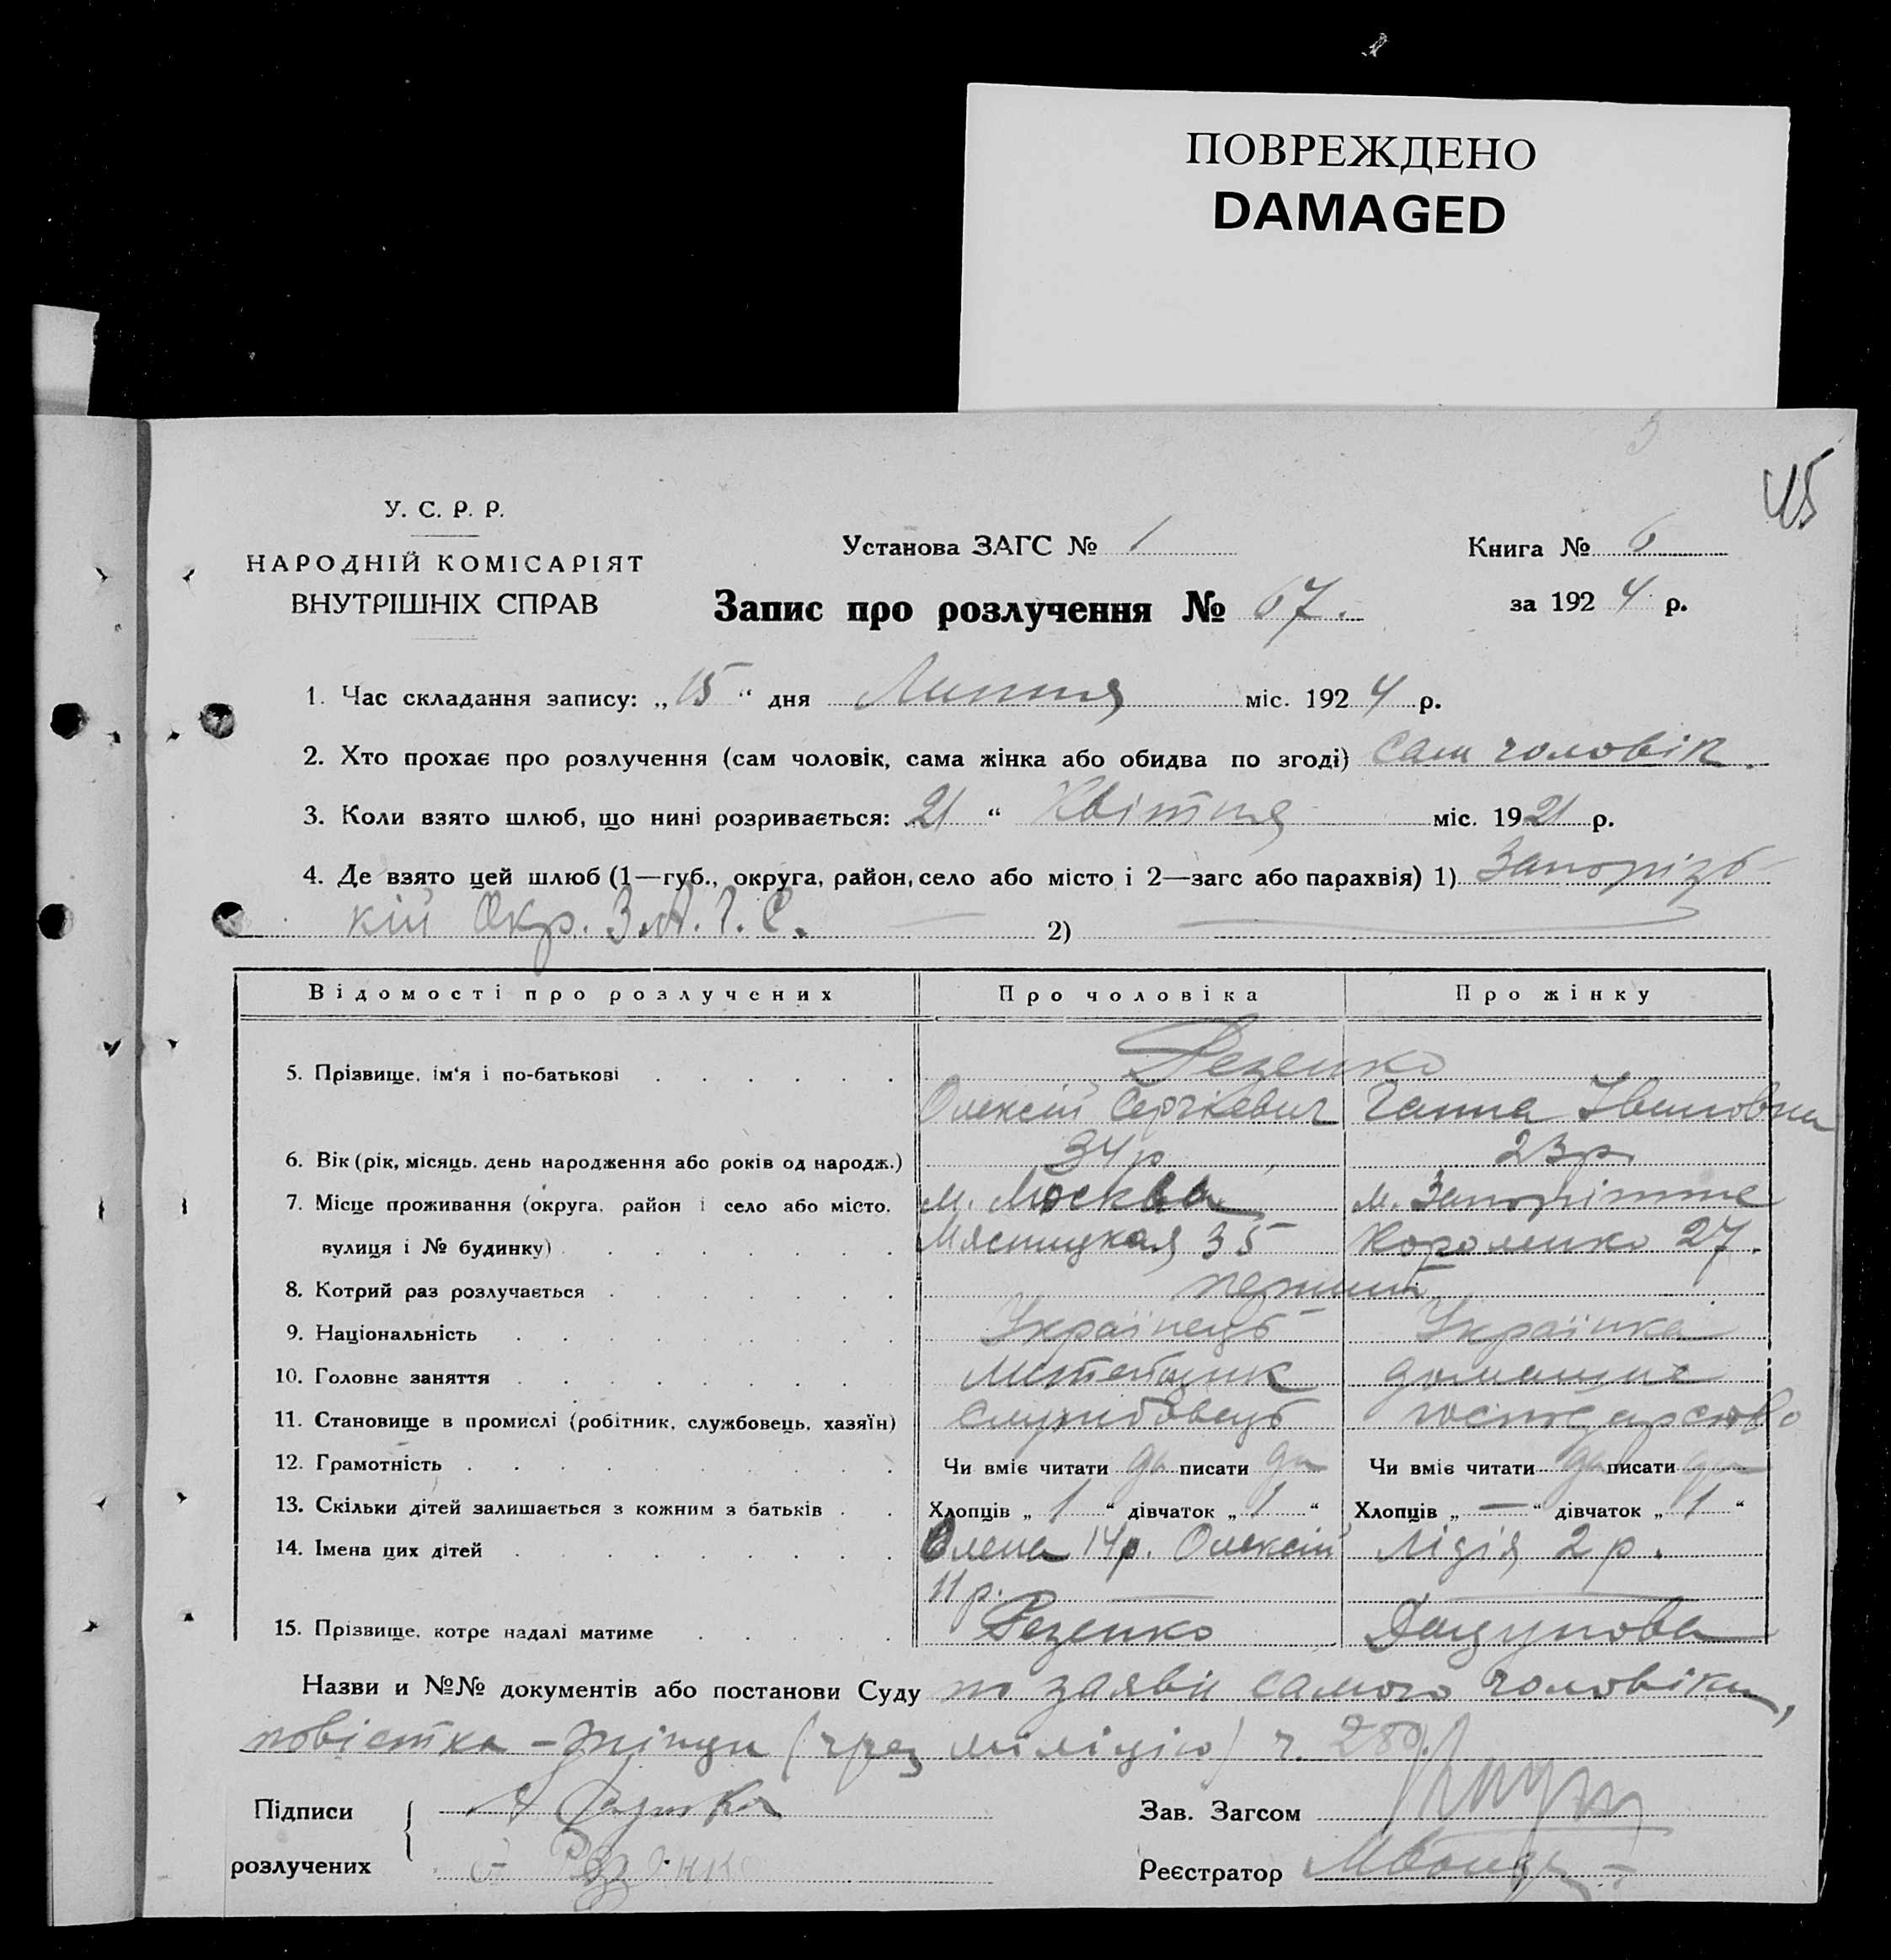 ПОВРЕЖДЕНО
DAMAGED
45
У. С. Р. Р.
НАРОДНІЙ КОМІСАРІЯТ
ВНУТРІШНІХ СПРАВ
Установа ЗАГС № 1
Книга № 6
Запис про розлучення № 67.
за 1924 р.
1. Час складання запису: „15" дня Липня міс. 1924 р.
2. Хто прохає про розлучення (сам чоловік, сама жінка або обидва по згоді) сам чоловік.
3. Коли взято шлюб, що нині розривається: 21 " Квітня міс. 1921 р.
4. Де взято цей шлюб (1—губ., округа, район, село або місто і 2—загс або парахвія) 1) Запорізь-
кій Окр. З.А.Г.С. 2)
Відомості про розлучених Про чоловіка Про жінку
5. Прізвище, ім'я і по-батькові Резенко
Олексій Сергієвич Ганна Івановна
6. Вік (рік, місяць, день народження або років од народж.) 34 р 23 р.
7. Місце проживання (округа, район і село або місто, м. Москва м. Запоріжже
вулиця і № будинку) Мясницкая 35 Короленко 27.
8. Котрий раз розлучається перший
9. Національність Українець Українка
10. Головне заняття домашнє
11. Становище в промислі (робітник, службовець, хазяїн) службовець господарство
12. Грамотність Чи вміє читати да писати да Чи вміє читати да писати да
13. Скільки дітей залишається з кожним з батьків Хлопців „ 1 " дівчаток „ 1 " Хлопців „ — " дівчаток „ 1 "
14. Імена цих дітей Олена 14 р. Олексій Лідія 2 р.
11 р.
15. Прізвище, котре надалі матиме Резенко
Назви и №№ документів або постанови Суду по заяви самого чоловіка,
повістка - жінци (чрез міліцію) ч. 280
Підписи
розлучених А Резенко
Зав. Загсом
Реєстратор